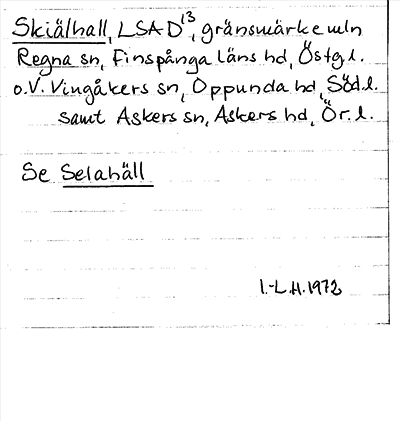 Skiälhall, LSA D¹³, gränsmärke mln
Regna sn, Finspånga läns hd, Östg.l.
o. V. Vingåkers sn, Oppunda hd, Söd.l.
samt Askers sn, Askers hd, Ör. l.
Se Selahäll
I.-L.H. 1972